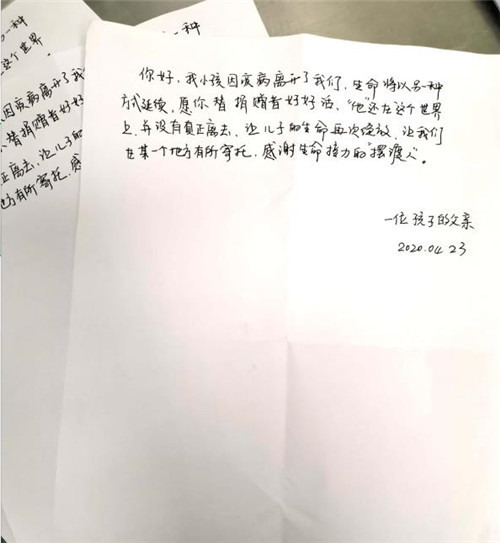 一种
这个世界
一种
因疾病离开了我
替捐赠者好好
正离去,让儿子的
地方有所寄托,感
你好,我小孩因疾病离开了我们,生命将以另一种
方式延续,愿你替捐赠者好好活,“他”还在这个世界
上,并没有真正离去,让儿子的生命再次绽放,让我们
在某一个地方有所寄托,感谢生命接力的“摆渡人”。
一位孩子的父亲
2020.04.23